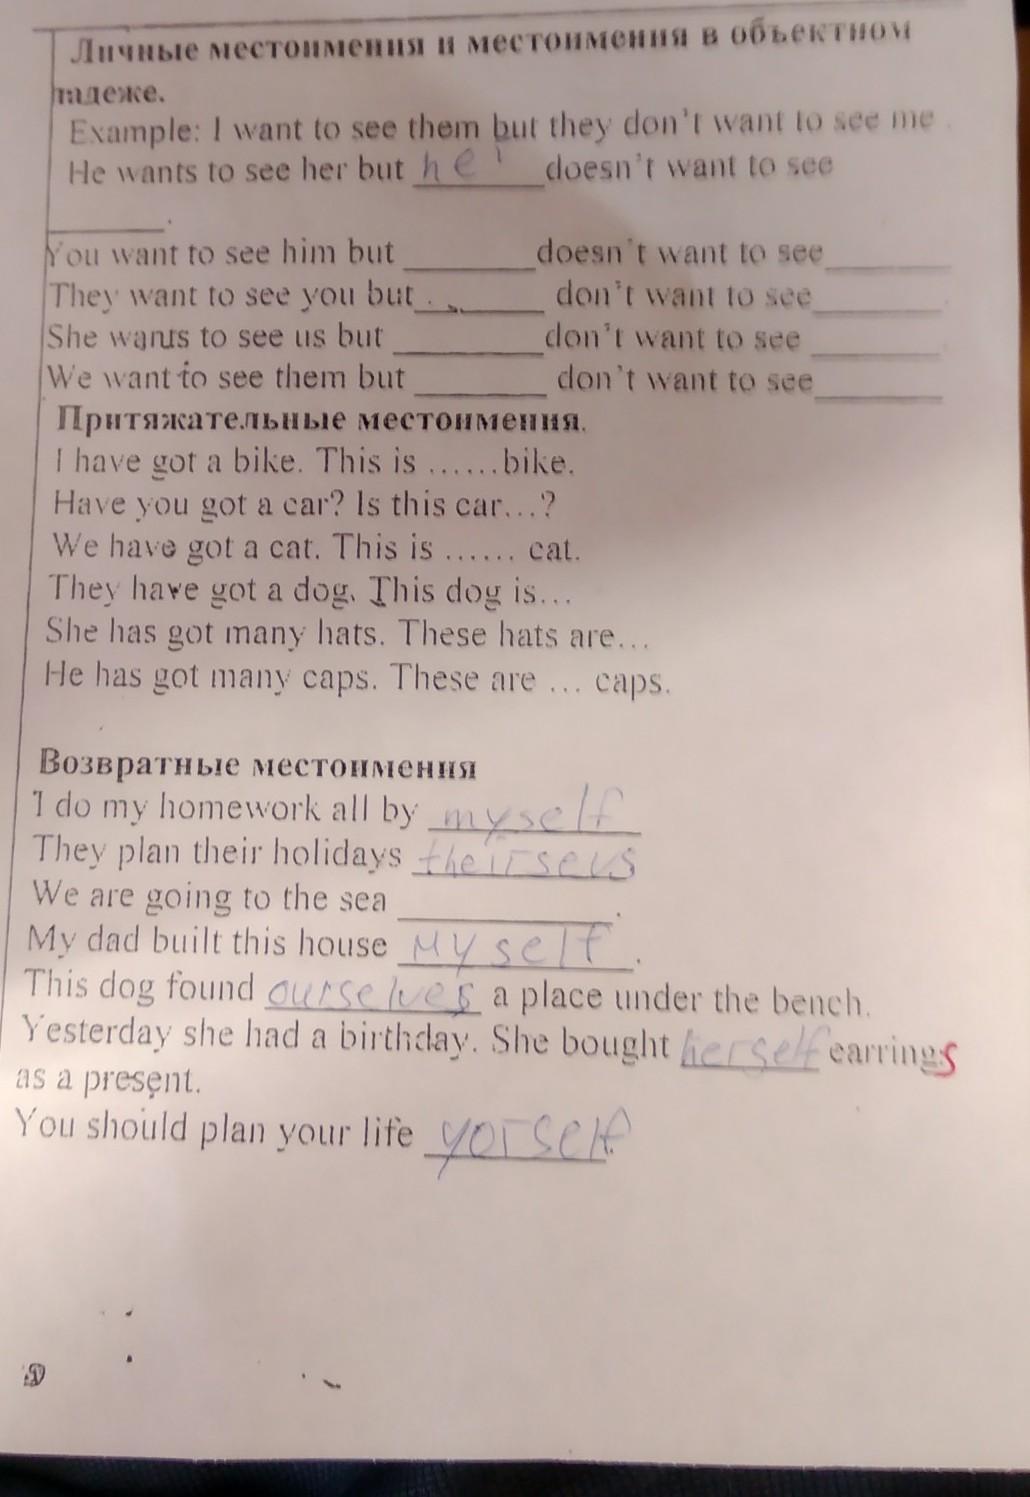 Личные местоимения и местоимения в объектном
падеже.
Example: I want to see them but they don't want to see me .
He wants to see her but her doesn't want to see
________.
You want to see him but ________ doesn't want to see________
They want to see you but ________ don't want to see________.
She wants to see us but ________ don't want to see ________
We want to see them but ________ don't want to see________
Притяжательные местоимения.
I have got a bike. This is ......bike.
Have you got a car? Is this car...?
We have got a cat. This is ...... cat.
They have got a dog. This dog is...
She has got many hats. These hats are...
He has got many caps. These are ... caps.
Возвратные местоимения
I do my homework all by myself
They plan their holidays theirsevs
We are going to the sea ____________.
My dad built this house myself.
This dog found ourselves a place under the bench.
Yesterday she had a birthday. She bought herself earrings
as a present.
You should plan your life yorself.